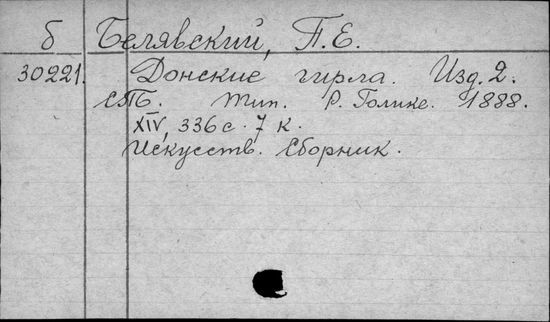 б Белявский, П.Е.
30221. Донские гирла. Изд. 2.
СПб. Тип. Р. Голике. 1888.
XIV, 336 с. 7 к.
Искусств. Сборник.